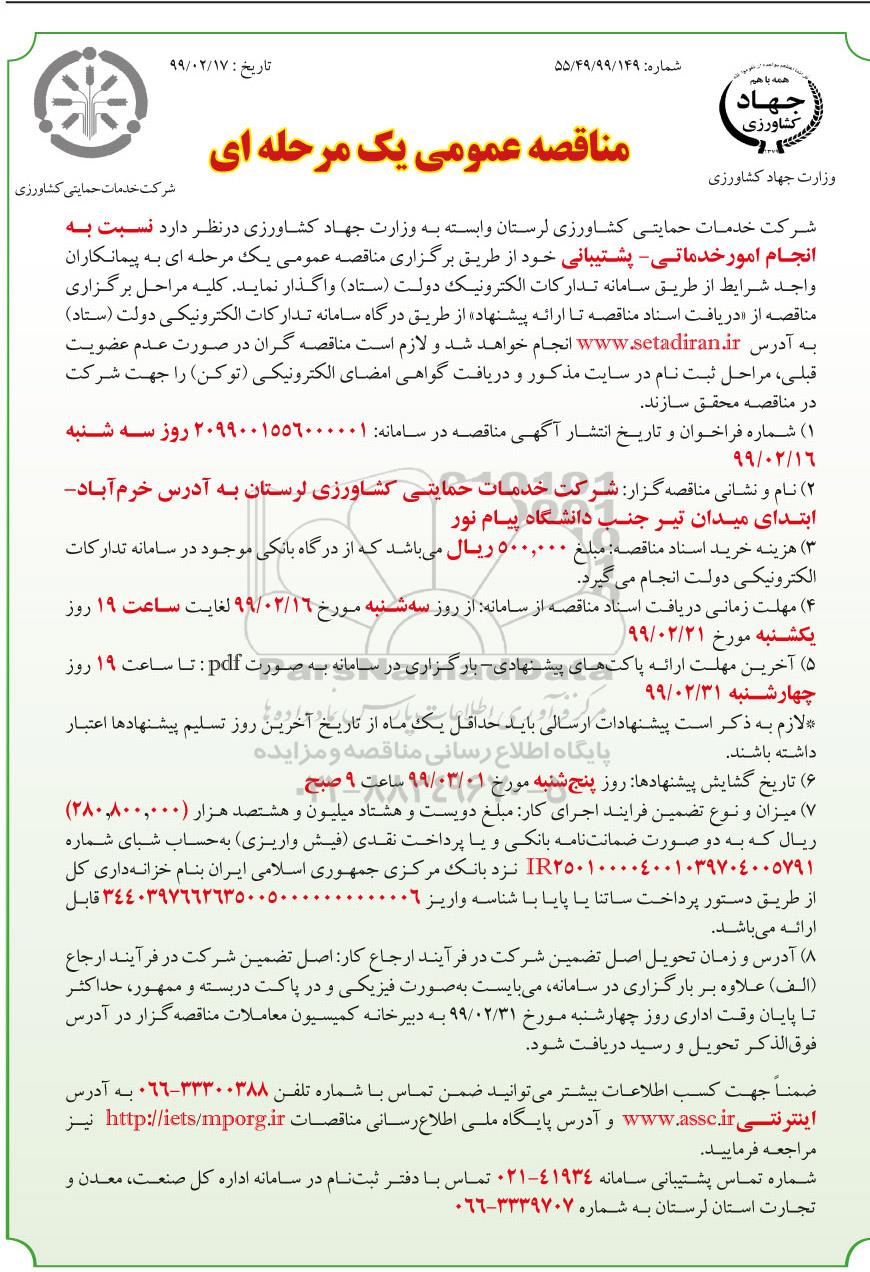 شماره: ۵۵/۴۹/۹۹/۱۴۹
تاریخ : ۹۹/۰۲/۱۷
همه با هم
جهاد
کشاورزی
وزارت جهاد کشاورزی
شرکت خدمات حمایتی کشاورزی
مناقصه عمومی یک مرحله ای
شرکت خدمات حمایتی کشاورزی لرستان وابسته به وزارت جهاد کشاورزی درنظر دارد نسبت به
انجام امورخدماتی- پشتیبانی خود از طریق برگزاری مناقصه عمومی یک مرحله ای به پیمانکاران
واجد شرایط از طریق سامانه تدارکات الکترونیک دولت (ستاد) واگذار نماید. کلیه مراحل برگزاری
مناقصه از «دریافت اسناد مناقصه تا ارائه پیشنهاد» از طریق درگاه سامانه تدارکات الکترونیکی دولت (ستاد)
به آدرس www.setadiran.ir انجام خواهد شد و لازم است مناقصه گران در صورت عدم عضویت
قبلی، مراحل ثبت نام در سایت مذکور و دریافت گواهی امضای الکترونیکی (توکن) را جهت شرکت
در مناقصه محقق سازند.
۱) شماره فراخوان و تاریخ انتشار آگهی مناقصه در سامانه: ۲۰۹۹۰۰۱۵۵۶۰۰۰۰۰۱ روز سه شنبه
۹۹/۰۲/۱۶
۲) نام و نشانی مناقصه‌گزار: شرکت خدمات حمایتی کشاورزی لرستان به آدرس خرم‌آباد-
ابتدای میدان تیر جنب دانشگاه پیام نور
۳) هزینه خرید اسناد مناقصه: مبلغ ۵۰۰,۰۰۰ ریال می‌باشد که از درگاه بانکی موجود در سامانه تدارکات
الکترونیکی دولت انجام می‌گیرد.
۴) مهلت زمانی دریافت اسناد مناقصه از سامانه: از روز سه‌شنبه مورخ ۹۹/۰۲/۱۶ لغایت ساعت ۱۹ روز
یکشنبه مورخ ۹۹/۰۲/۲۱
۵) آخرین مهلت ارائه پاکت‌های پیشنهادی- بارگزاری در سامانه به صورت pdf : تا ساعت ۱۹ روز
چهارشنبه ۹۹/۰۲/۳۱
*لازم به ذکر است پیشنهادات ارسالی باید حداقل یک ماه از تاریخ آخرین روز تسلیم پیشنهادها اعتبار
داشته باشند.
۶) تاریخ گشایش پیشنهادها: روز پنج‌شنبه مورخ ۹۹/۰۳/۰۱ ساعت ۹ صبح
۷) میزان و نوع تضمین فرایند اجرای کار: مبلغ دویست و هشتاد میلیون و هشتصد هزار (۲۸۰,۸۰۰,۰۰۰)
ریال که به دو صورت ضمانت‌نامه بانکی و یا پرداخت نقدی (فیش واریزی) به‌حساب شبای شماره
IR۲۵۰۱۰۰۰۰۴۰۰۱۰۳۹۷۰۴۰۰۵۷۹۱ نزد بانک مرکزی جمهوری اسلامی ایران بنام خزانه‌داری کل
از طریق دستور پرداخت ساتنا یا پایا با شناسه واریز ۳۴۴۰۳۹۷۶۶۲۶۳۵۰۰۵۰۰۰۰۰۰۰۰۰۰۰۰۰۶ قابل
ارائه می‌باشد.
۸) آدرس و زمان تحویل اصل تضمین شرکت در فرآیند ارجاع کار: اصل تضمین شرکت در فرآیند ارجاع
(الف) علاوه بر بارگزاری در سامانه، می‌بایست به‌صورت فیزیکی و در پاکت دربسته و ممهور، حداکثر
تا پایان وقت اداری روز چهارشنبه مورخ ۹۹/۰۲/۳۱ به دبیرخانه کمیسیون معاملات مناقصه‌گزار در آدرس
فوق‌الذکر تحویل و رسید دریافت شود.
ضمناً جهت کسب اطلاعات بیشتر می‌توانید ضمن تماس با شماره تلفن ۰۶۶-۳۳۳۰۰۳۸۸ به آدرس
اینترنتی www.assc.ir و آدرس پایگاه ملی اطلاع‌رسانی مناقصات http://iets/mporg.ir نیز
مراجعه فرمایید.
شماره تماس پشتیبانی سامانه ۰۲۱-۴۱۹۳۴ تماس با دفتر ثبت‌نام در سامانه اداره کل صنعت، معدن و
تجارت استان لرستان به شماره ۰۶۶-۳۳۳۹۷۰۷
ParsNamadData
مرکز فن‌آوری اطلاعات پارس نماد داده‌ها
پایگاه اطلاع رسانی مناقصه و مزایده